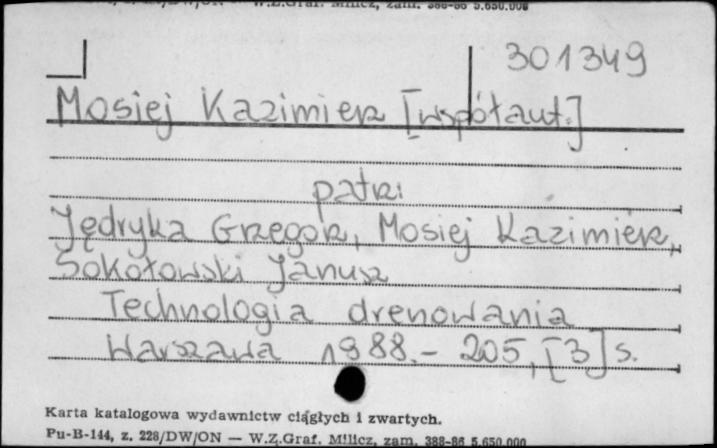 W.Z.Graf. Milicz, zam. 388-86 5.650.000
301349
Mosiej Kazimierz [współaut.]
patrz
Jędryka Grzegorz, Mosiej Kazimierz,
Sokołowski Janusz
Technologia drenowania
Warszawa 1988.- 205, [3] s.
Karta katalogowa wydawnictw ciągłych i zwartych.
Pu-B-144, z. 228/DW/ON — W.Z.Graf. Milicz, zam. 388-86 5.650.000